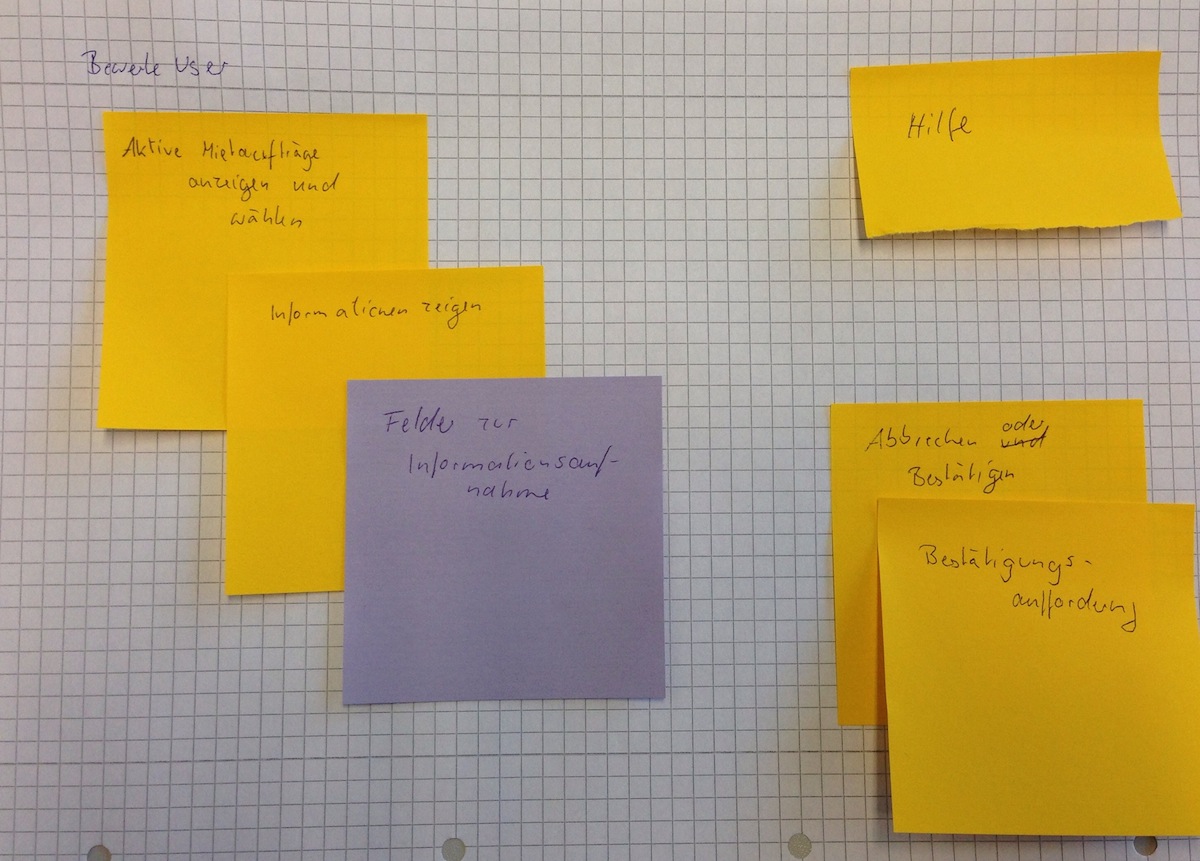 Bewerte User
Aktive Mietaufträge
anzeigen und
wählen
Informationen zeigen
Felder zur
Informationsauf-
nahme
Hilfe
Abbrechen oder
und
Bestätigen
Bestätigungs-
aufforderung